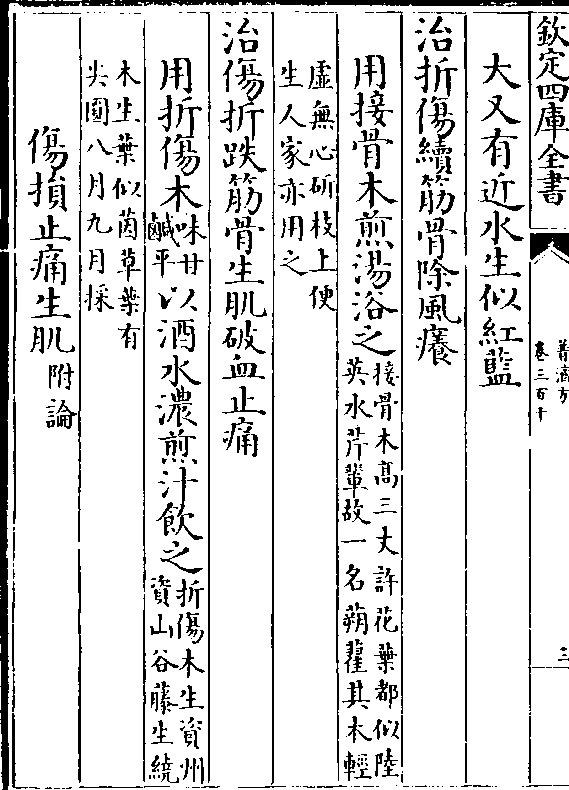 欽定四庫全書
普濟方
卷三百十
三
大又有近水生似紅藍
治折傷續筋骨除風癢
用接骨木煎湯浴之接骨木高三丈許花葉都似陸
英水芹軰故一名蒴藋其木輕
虛無心斫枝上便
生人家亦用之
治傷折跌筋骨生肌破血止痛
用折傷木味甘
鹹平以酒水濃煎汁飲之折傷木生資州
資山谷藤生繞
木生葉似茵草葉有
尖圓八月九月採
傷損止痛生肌附論